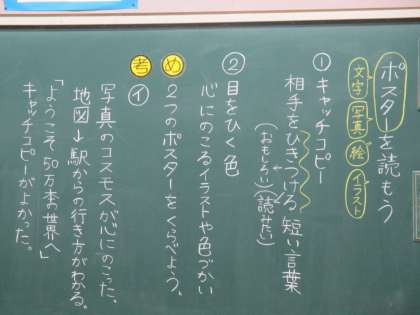 ポスターを読もう
文字 写真 絵 イラスト
①キャッチコピー
相手をひきつける短い言葉
(おもしろい)(読みたい)
②目をひく色
心にのこるイラストや色づかい
め 2つのポスターをくらべよう。
考 イ
写真のコスモスが心にのこった。
地図→駅からの行き方がわかる。
「ようこそ、50万本の世界へ」
キャッチコピーがよかった。